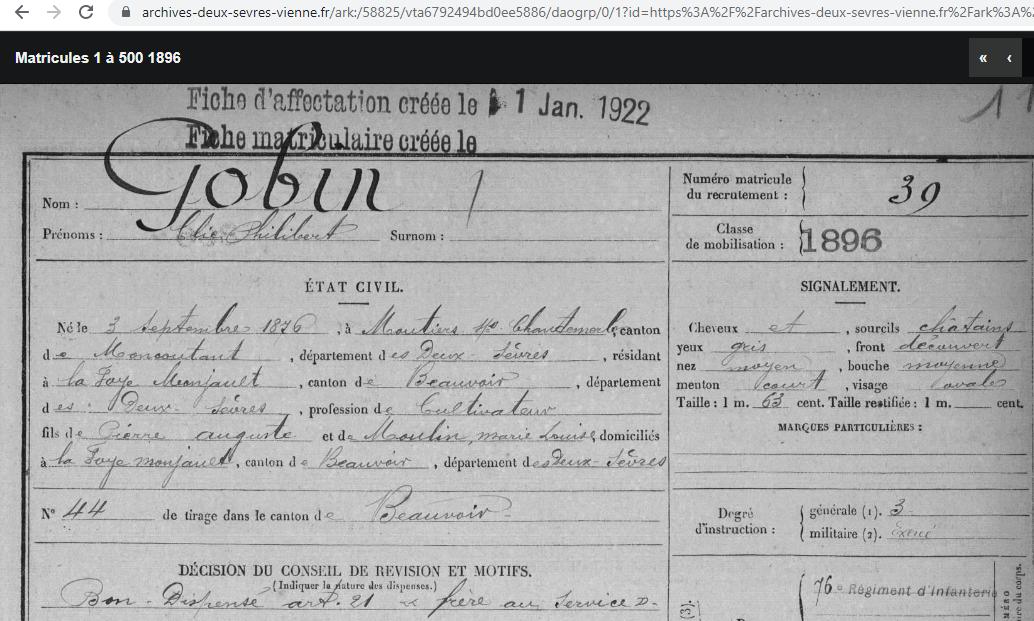 archives-deux-sevres-vienne.fr/ark:/58825/vta6792494bd0ee5886/daogrp/0/1?id=https%3A%2F%2Farchives-deux-sevres-vienne.fr%2Fark%3A%
Matricules 1 à 500 1896
« ‹
Fiche d'affectation créée le 1 Jan. 1922
Fiche matriculaire créée le
Nom : Gobin
Prénoms : Elie Philibert Surnom :
Numéro matricule du recrutement : 39
Classe de mobilisation : 1896
ÉTAT CIVIL.
Né le 3 Septembre 1876, à Moutiers s/s Chantemerle, canton
de Moncoutant, département des Deux-Sèvres, résidant
à la Foye Monjault, canton de Beauvoir, département
des Deux-Sèvres, profession de Cultivateur
fils de Pierre auguste et de Moulin, marie Louise, domiciliés
à la Foye monjault, canton de Beauvoir, département des Deux-Sèvres
N° 44 de tirage dans le canton de Beauvoir
DÉCISION DU CONSEIL DE REVISION ET MOTIFS.
(Indiquer la nature des dispenses.)
Bon - Dispensé art. 21 frère au Service D-
SIGNALEMENT.
Cheveux et, sourcils châtains
yeux gris, front découvert
nez moyen, bouche moyenne
menton court, visage ovale
Taille : 1 m. 63 cent. Taille rectifiée : 1 m. cent.
MARQUES PARTICULIÈRES :
Degré d'instruction :
générale (1). 3
militaire (2). exercé
76e Régiment d'Infanterie
(3).
MÉRO
re du corps.